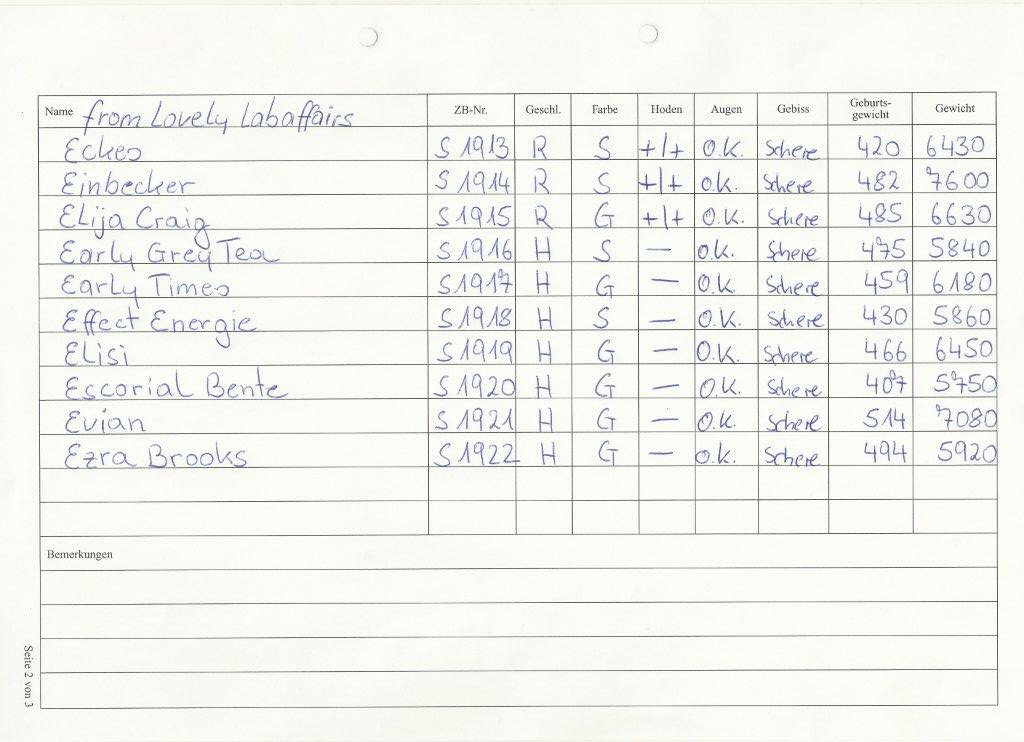 Name from Lovely Labaffairs ZB-Nr. Geschl. Farbe Hoden Augen Gebiss Geburts-gewicht Gewicht
Eckes S 1913 R S +/+ O.K. Schere 420 6430
Einbecker S 1914 R S +/+ O.K. Schere 482 7600
Elija Craig S 1915 R G +/+ O.K. Schere 485 6630
Early Grey Tea S 1916 H S — O.K. Schere 475 5840
Early Times S 1917 H G — O.K. Schere 459 6180
Effect Energie S 1918 H S — O.K. Schere 430 5860
Elisi S 1919 H G — O.K. Schere 466 6450
Escorial Bente S 1920 H G — O.K. Schere 407 5750
Evian S 1921 H G — O.K. Schere 514 7080
Ezra Brooks S 1922 H G — O.K. Schere 494 5920
Bemerkungen
Seite 2 von 3